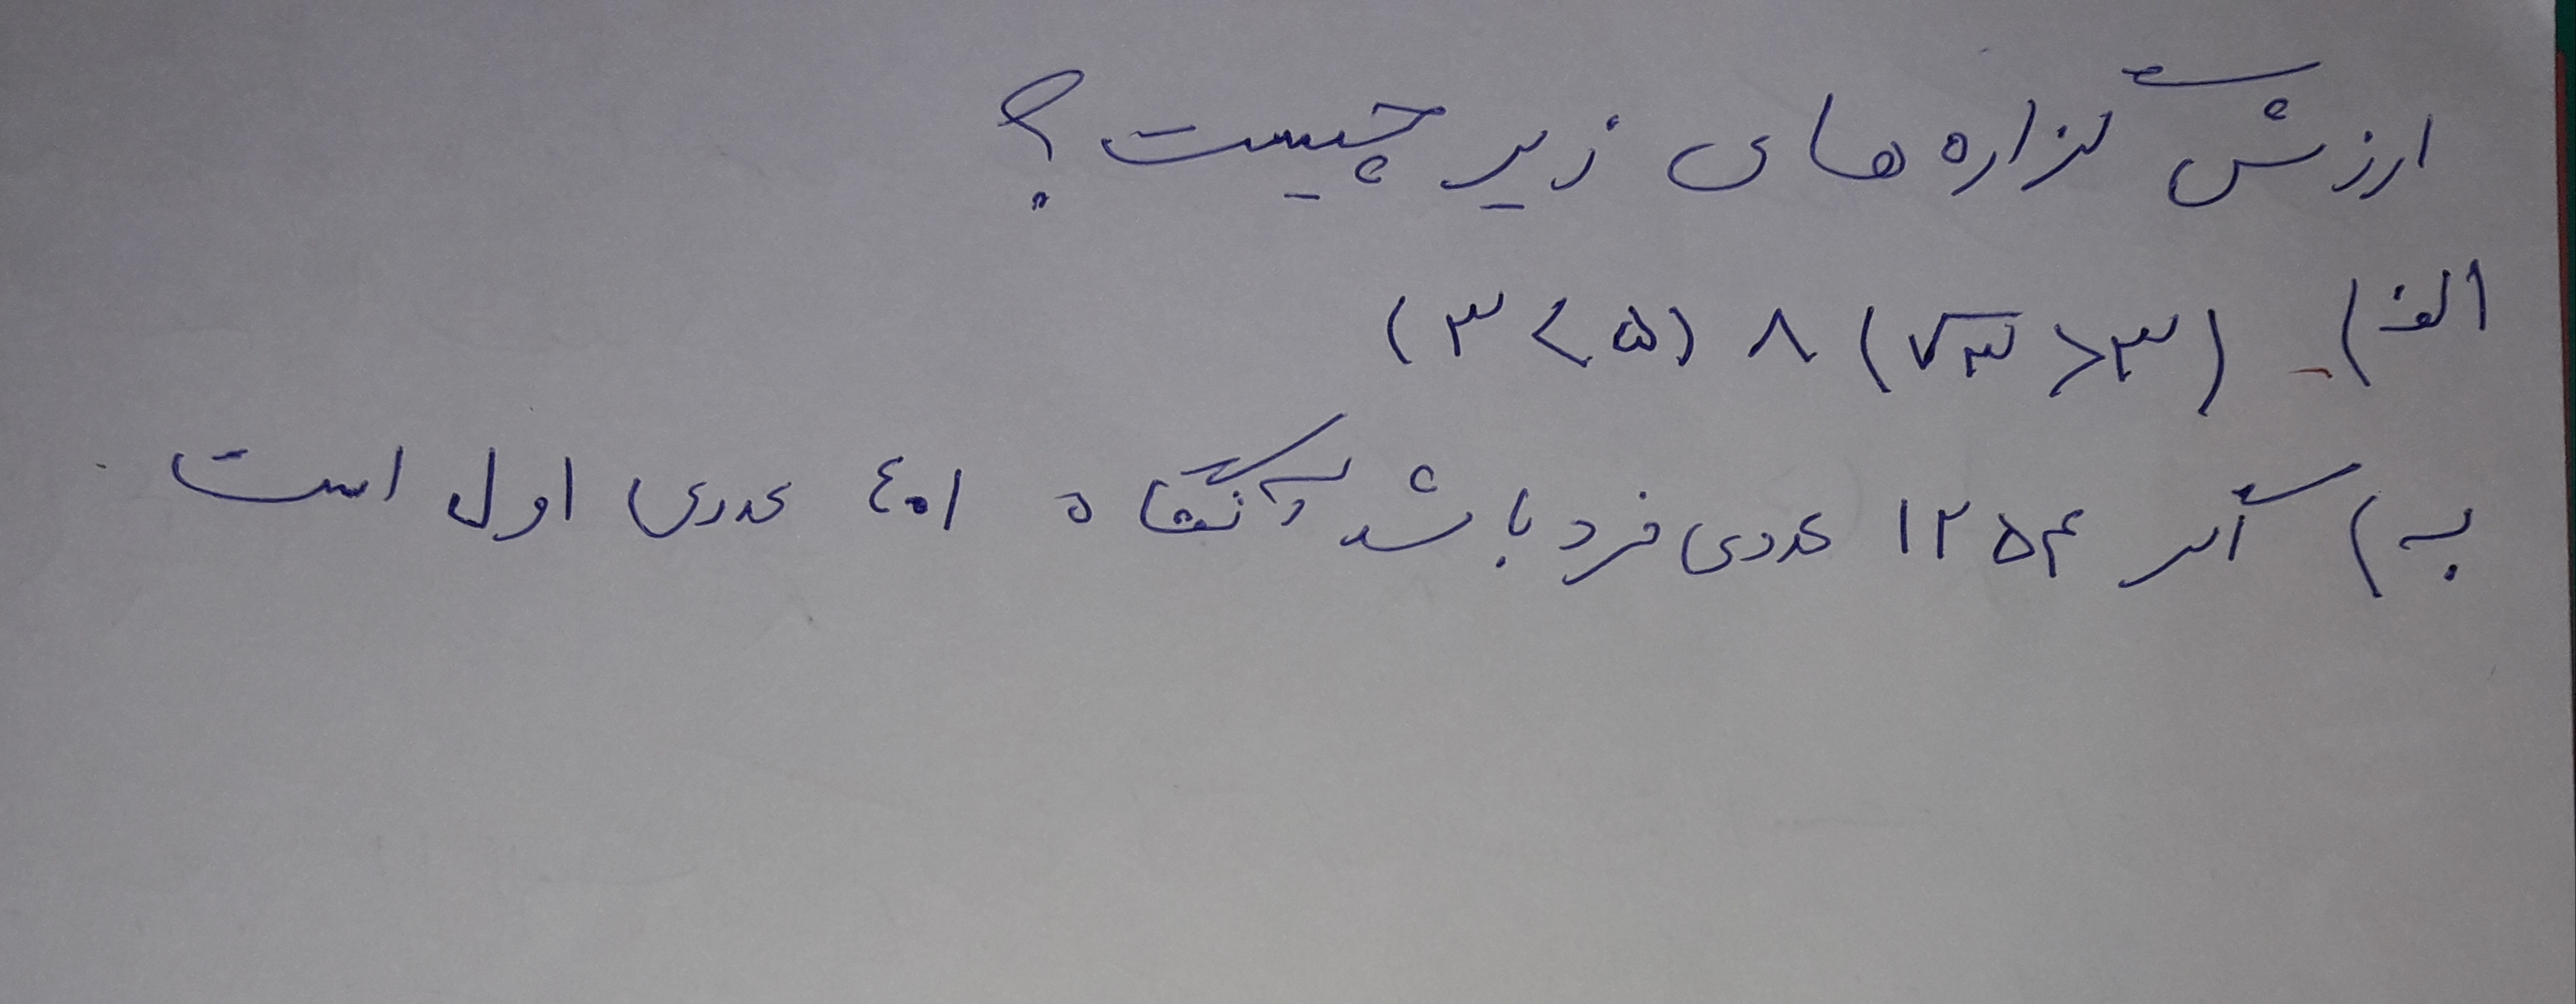 ارزش گزاره های زیر چیست؟
الف) (۳ < ۵) ∧ (√۳ > ۳)
ب) اگر ۱۲۵۴ عددی فرد باشد آنگاه ٤٠١ عددی اول است